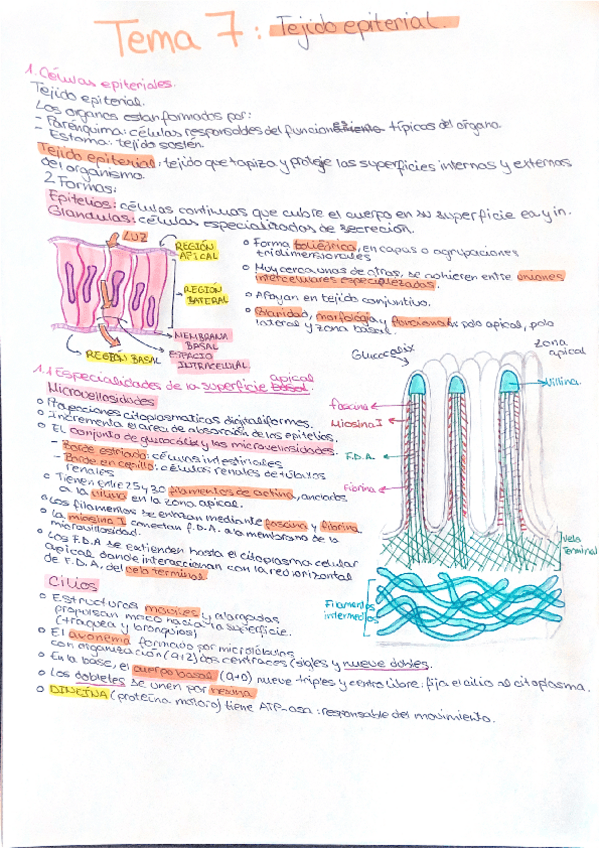 Tema 7: Tejido epiterial.
1. Células epiteriales.
Tejido epiterial.
Los organos estan formados por:
- Parénquima: células responsables del funcion típicos del órgano.
- Estroma: tejido sostén.
Tejido epiterial: tejido que tapiza y protege las superficies internas y externas
del organismo.
2 Formas:
Epitelios: células continuas que cubre el cuerpo en su superficie ex y in.
Glandulas: células especializadas de secreción.
LUZ
REGIÓN
APICAL
REGION
LATERAL
MEMBRANA
BASAL
REGION BASAL
ESPACIO
INTRACELULAR
o Forma poliédrica, en capas o agrupaciones
tridimensionales
o Muy cerca unas de otras, se adhieren entre uniones
intercelulares especializadas.
o Apoyan en tejido conjuntivo.
o Polaridad, morfología y funcional: polo apical, polo
lateral y zona basal.
1.1 Especialidades de la superficie apical
Microvellosidades
o Proyecciones citoplasmaticas digitaliformes.
o Incrementa el area de absorción de los epitelios.
o El conjunto de glucocálix y las microvellosidades:
- Borde estriado: células intestiniales
- Borde en cepillo: células renales de túbulos
renales
o Tienen entre 25 y 30 filamentos de actina, anclados
a la villina en la zona apical.
o Los filamentos se enlazan mediante fascina y fibrina
o La miosina I conectan f.D.A. a la membrana de la
microvillosidad.
o Los F.D.A se extienden hasta el citoplasma celular
apical donde interaccionan con la red horizontal
de F.D.A, del velo terminal
Glucocalix
zona
apical
Villina.
fascina
Miosina I
F.D.A.
Fibrina
Velo
Terminal
Filamentos
intermedios
Cilios
o Estructuras moviles y alargadas
propulsan moco hacia la superficie.
(traquea y bronquios)
o El axonema formado por microtúbulos
con organización (9+2) dos centrales (sigles y nueve dobles.
o En la base, el cuerpo basal (9+0) nueve triples y centro libre. fija el cilio al citoplasma.
o Los dobletes se unen por nexina
o DINEINA (proteína motora) tiene ATP-asa: responsable del movimiento.